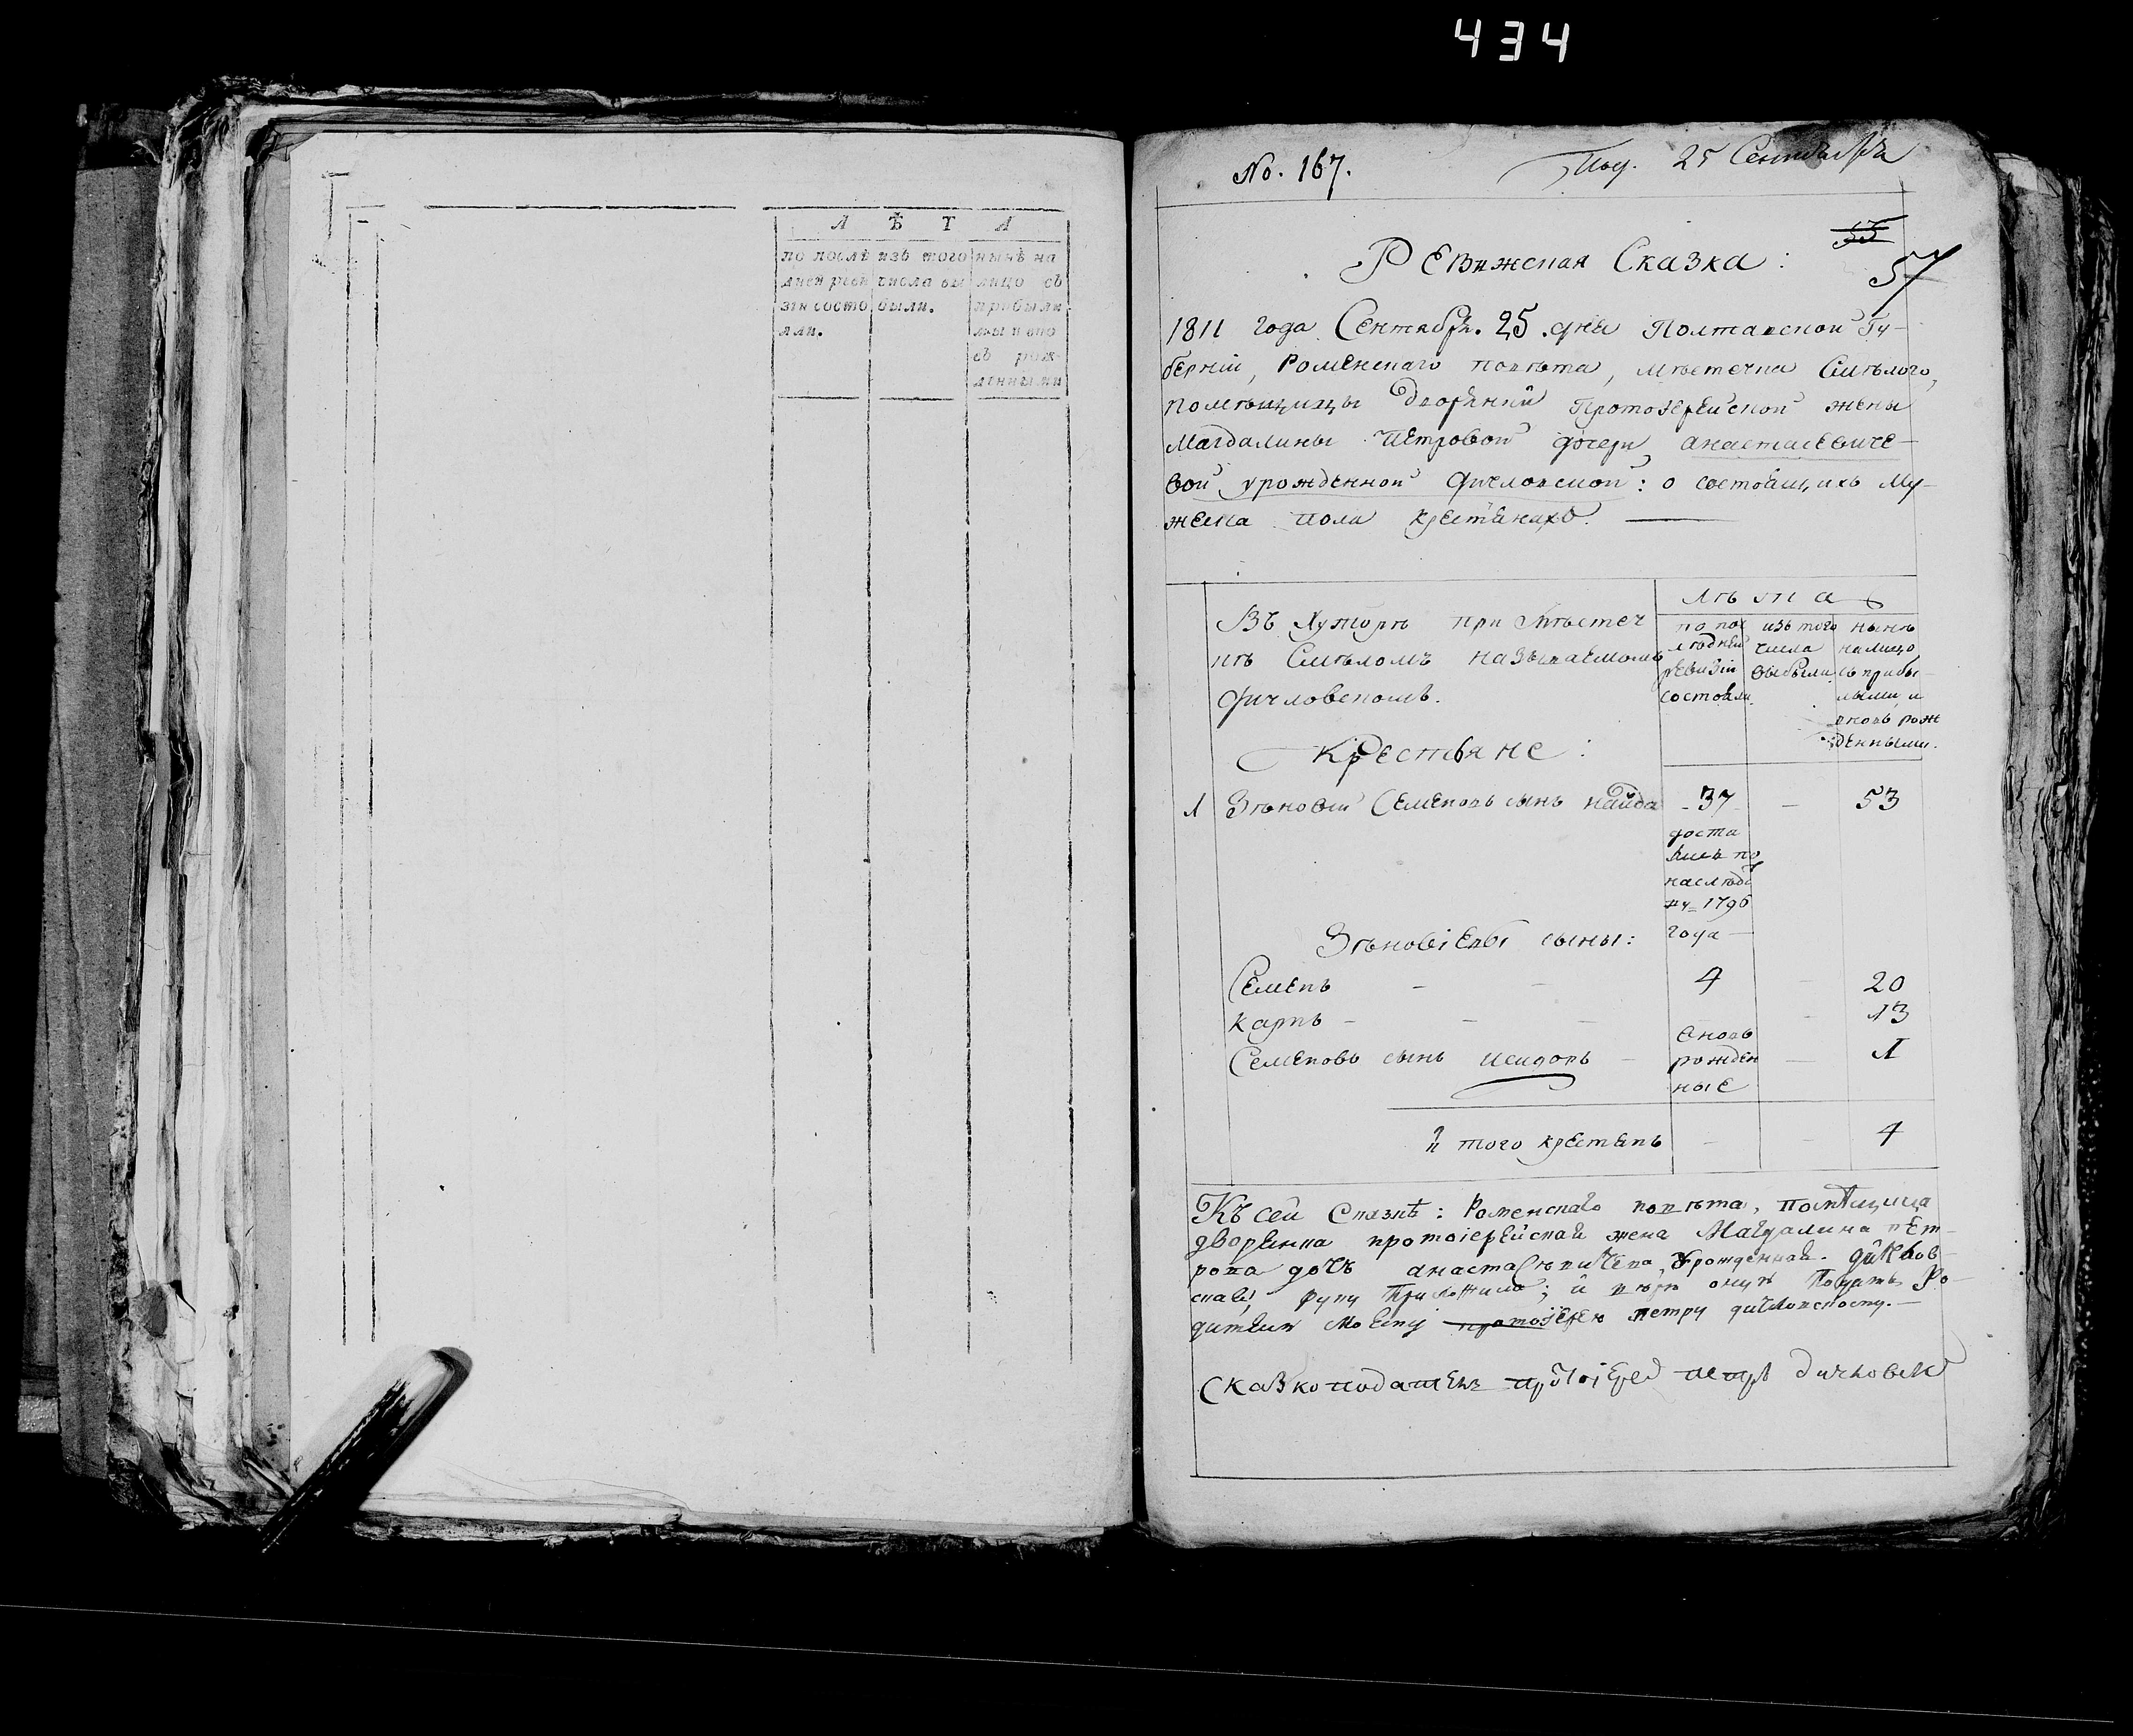 434
Л Ѣ Т А
по послѣ
дней реви
зіи состо
яли.
изъ того
числа вы
были.
нынѣ на
лицо съ
прибыли
мы и вно
съ рож
денными
No. 167.
Под. 25 Сентября
55
57
Ревижская Сказка:
1811 года Сентября. 25. дня Полтавской Гу-
берніи, Роменскаго повѣта, мѣстечка Смѣлого,
помѣщицы дворянки Протоіерейской жены
Магдалины Петровой дочери Анастасевиче-
вой урожденной Дичловской: о состоящихъ му-
жеска пола крестянахъ.
Въ Хуторѣ при мѣстеч
кѣ Смѣломъ называемомъ
Дичловскомъ.
Крестьяне:
Лѣта
по пос
лѣдней
ревизіи
состояли.
изъ того
числа
выбыли.
нынѣ
налицо
съ прибы
лыми и
вновь рож
денными.
1 Зѣновій Семеновъ сынъ Кайда - 37 - 53
доста
лись по
наслѣдс
ву 1796
года
Зѣновіевы сыны:
Семенъ - - 4 - 20
Карпъ - - - - 13
Семеновъ сынъ Исидоръ - - 1
вновь
рожден
ные
И того крестянъ - - 4
Къ сей Сказкѣ: Роменскаго повѣта, помѣщица
дворянка протоіерейская жена Магдалина Пет-
рова дочь Анастасѣвичева, Урожденная. Дичлов-
ская, руку Приложила; и вѣрю оную Подать Ро-
дителю моему протоіерею Петру Дичловскому.
Сказкоподатель протоіерей Петръ Дичловскі